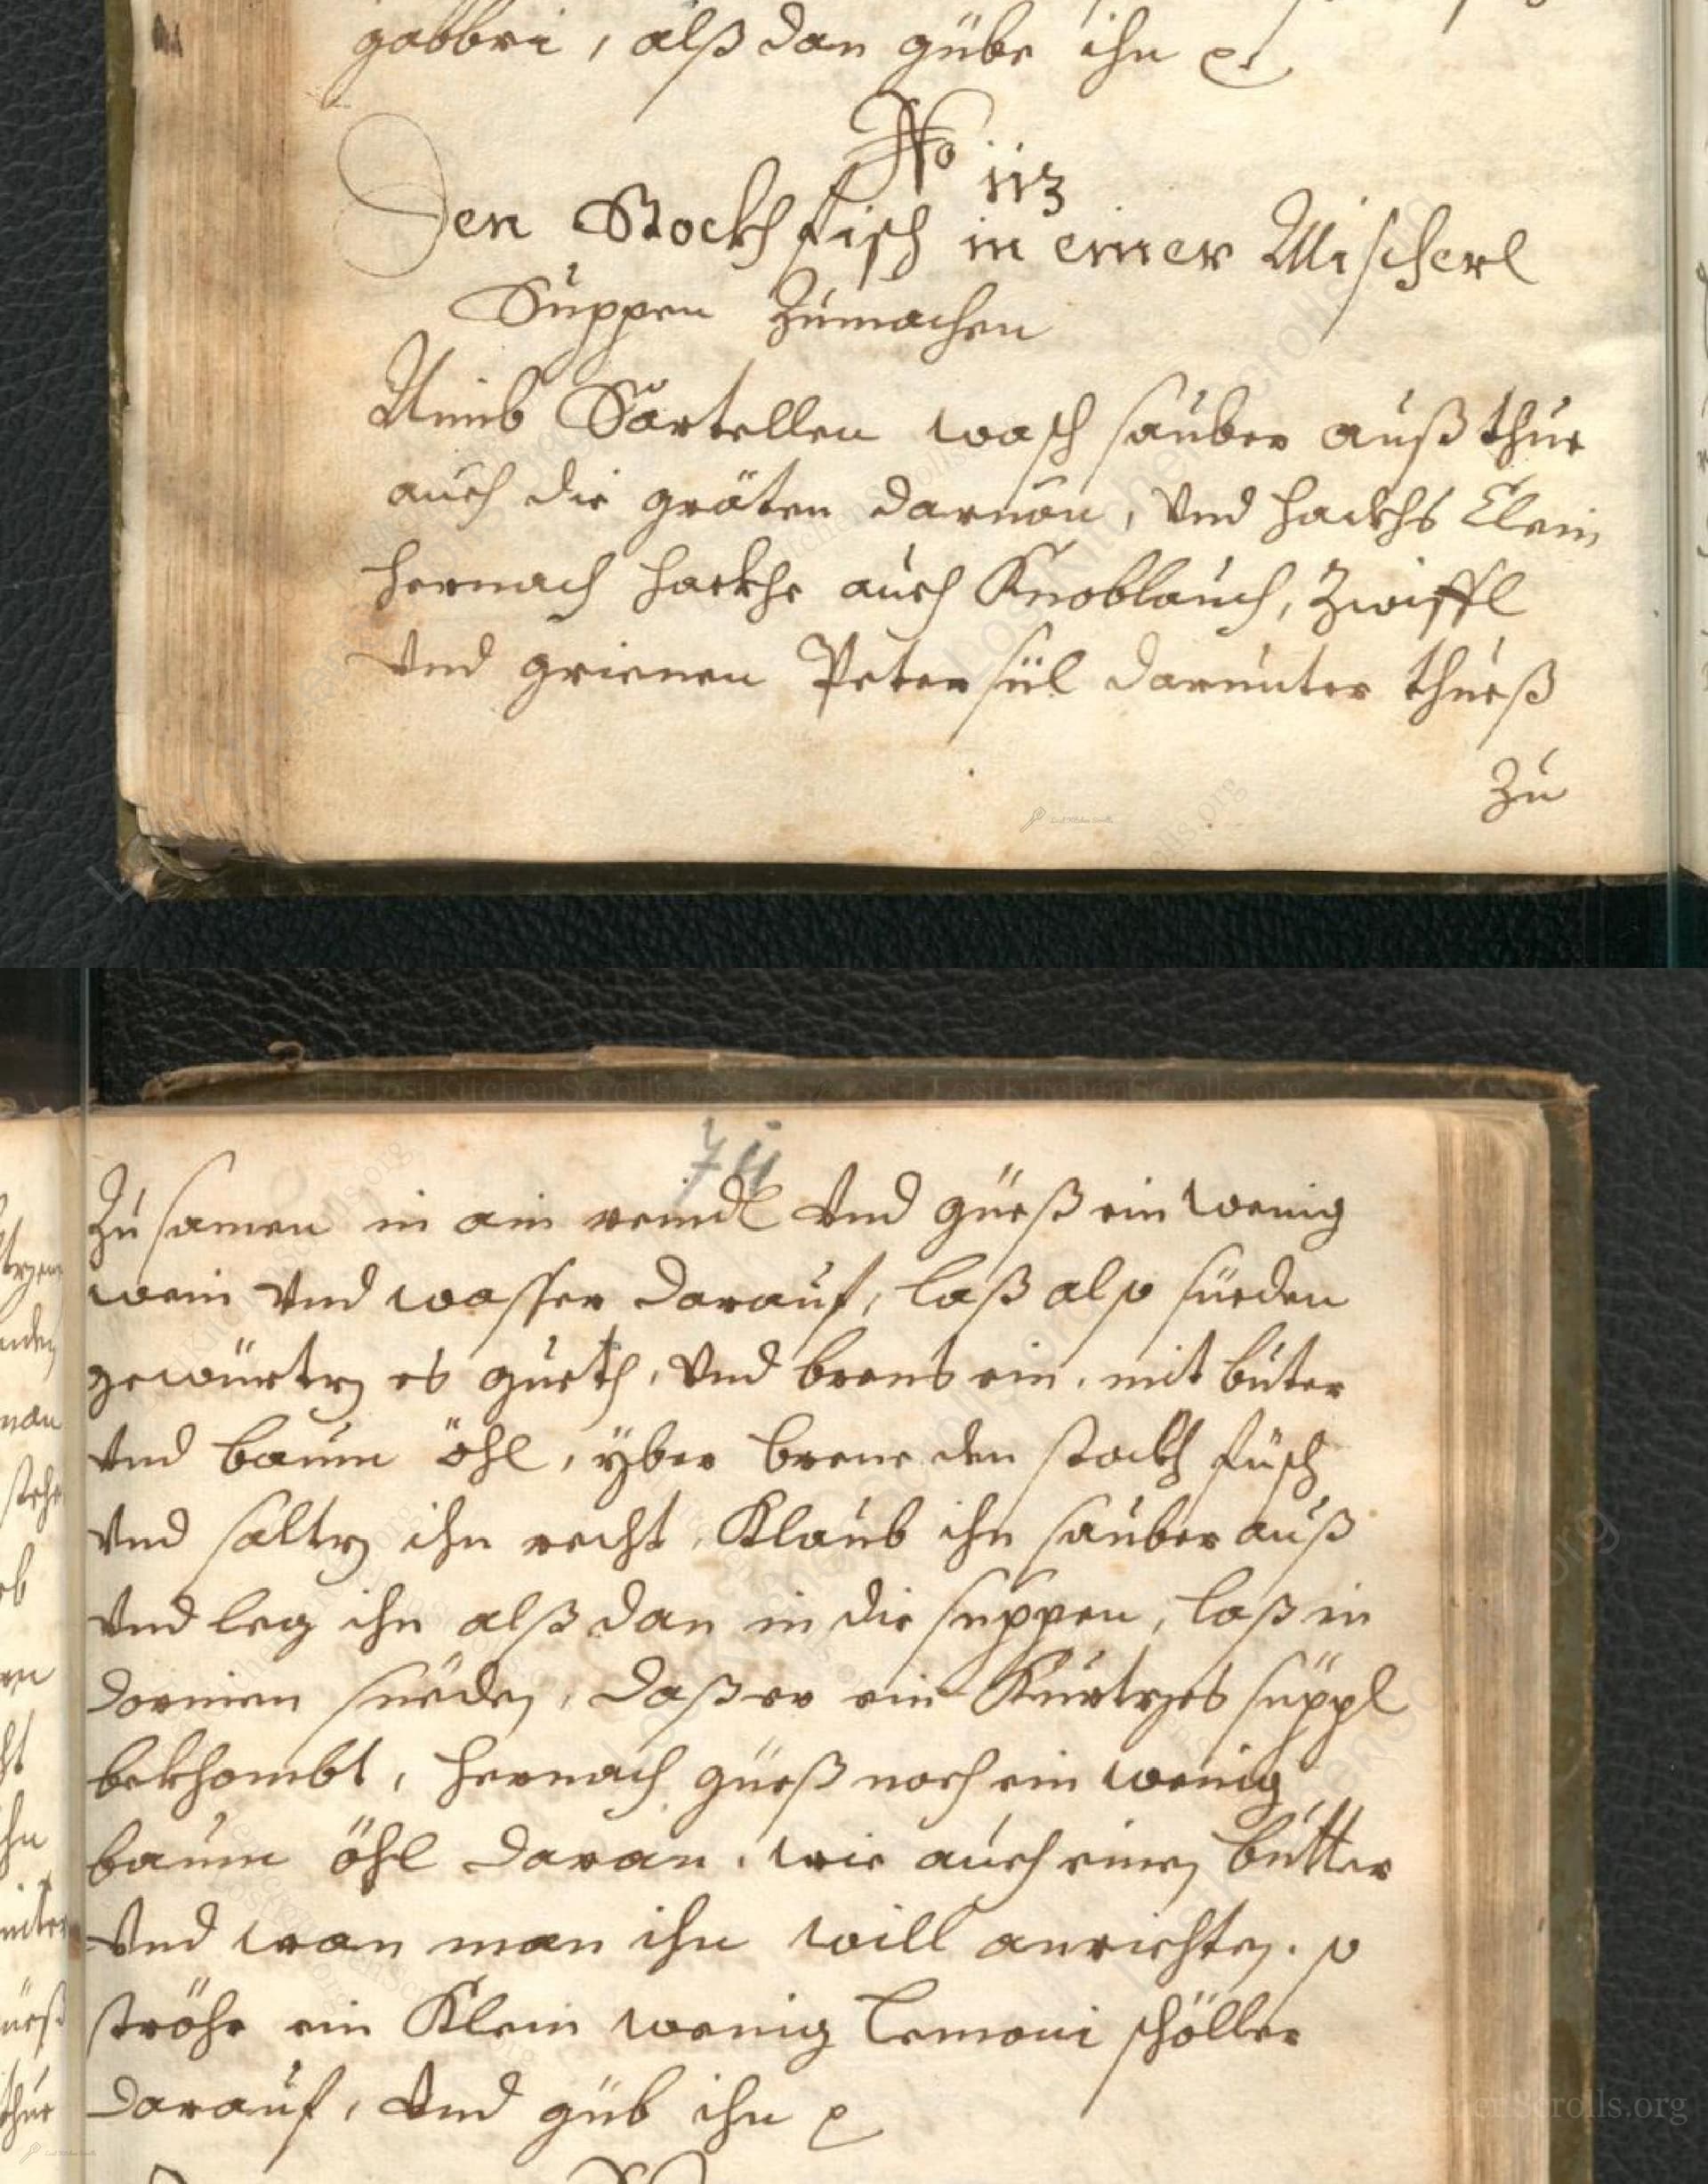 gabbri, alß dan gübe ihn
No 113
Den Stockhfisch in einer Mischerl
Suppen Zumachen
Nimb Sartellen wasch sauber auß thue
auch die gräten daruon, Vnd hackhs klein
hernach hackhe auch Knoblauch, Zwiffl
Vnd grienen Petersül darunter thueß
Zu
74
Zusamen in ain reindl Vnd güeß ein wenig
wein Vnd wasser darauf, laß also süeden
gewürtz es gueth, Vnd brens ein, mit buter
Vnd baum öhl, yber brene den stockh füsch
Vnd saltz ihn recht, Klaub ihn sauber auß
Vnd leg ihn alß dan in die suppen, laß in
darinen süeden, daß er ein Kurtzes süppl
bekhombt, hernach güeß noch ein wenig
baum öhl daran, wie auch einen butter
Vnd wan man ihn will anrichten. so
ströhe ein Klein wenig lemoni schöller
darauf, Vnd güb ihn